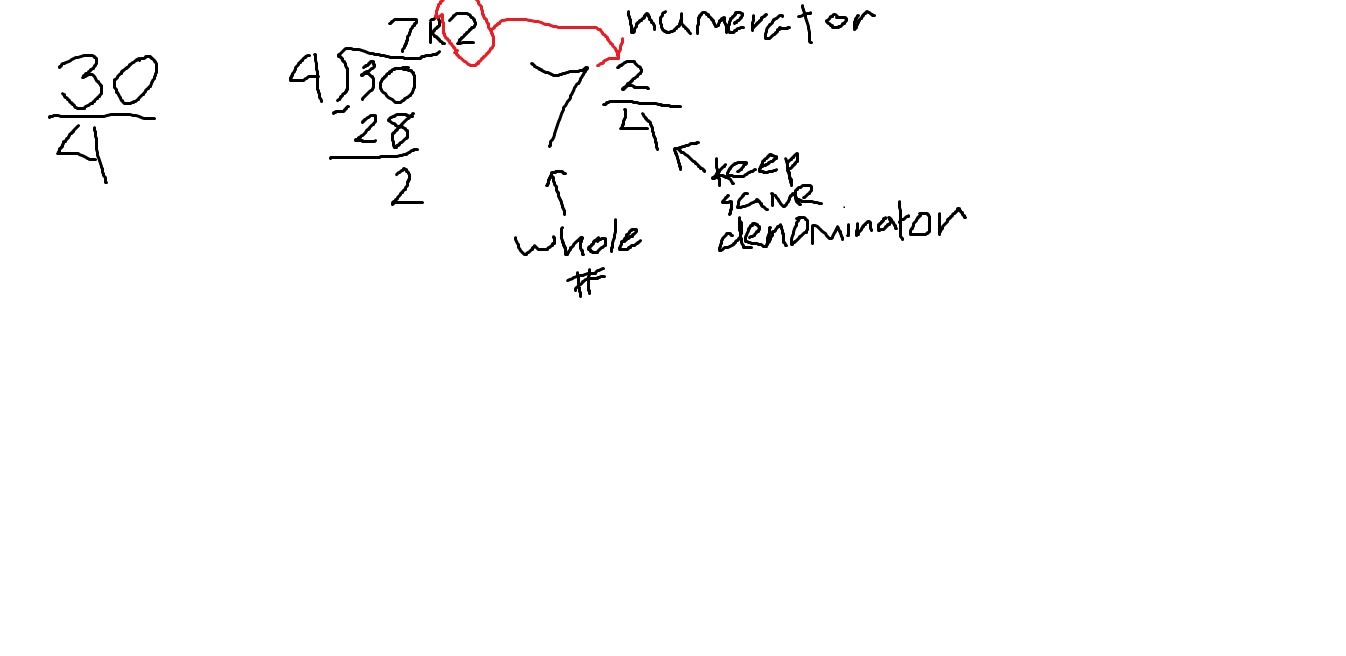 30
4
7 R2
4)30
- 28
2
7 2
4
numerator
whole
#
keep
same
denominator